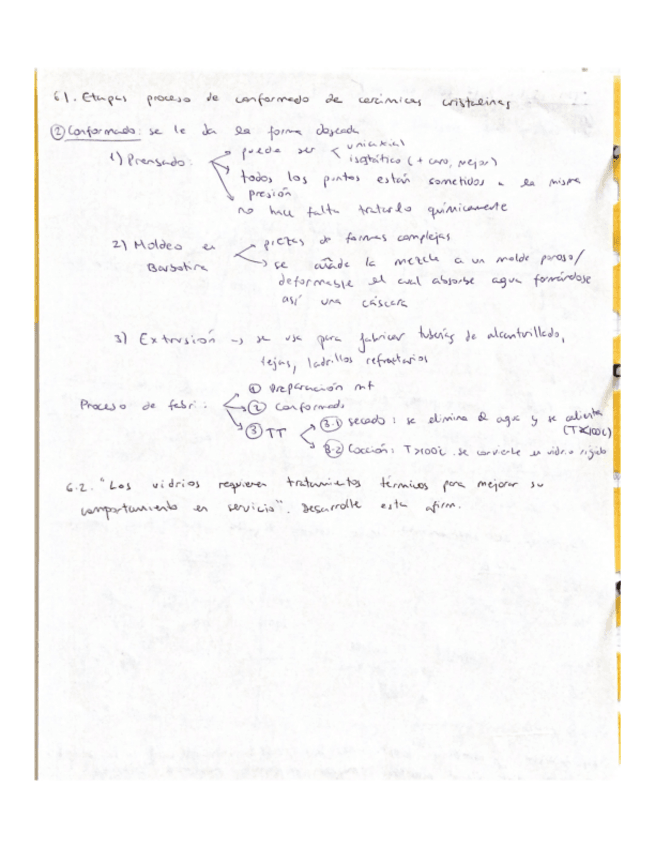 61. Etapas proceso de conformado de cerámicas cristalinas
② Conformado: se le da la forma deseada
1) Prensado: puede ser < uniaxial
isostático (+ caro, mejor)
todos los puntos están sometidos a la misma
presión
no hace falta tratarlo químicamente
2) Moldeo en piezas de formas complejas
Barbotina → se añade la mezcla a un molde poroso/
deformable el cual absorbe agua formándose
así una cáscara
3) Extrusión → se usa para fabricar tuberías de alcantarillado,
tejas, ladrillos refractarios
Proceso de fabri: ① Preparación mt
② Conformado
③ TT 3.1 secado: se elimina el agua y se calienta
(T<100C)
3.2 Cocción: T>100C se convierte en vidrio rígido
6.2. "Los vidrios requieren tratamientos térmicos para mejorar su
comportamiento en servicio". Desarrolle esta afirm.